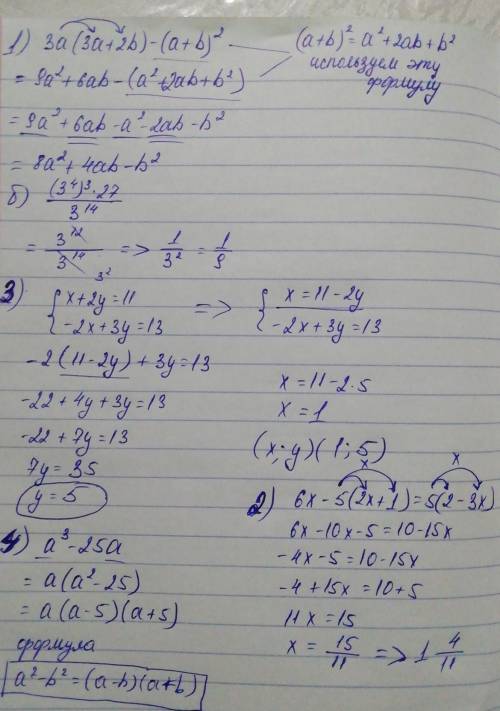 1) 3a(3a+2b)-(a+b)²
(a+b)²=a²+2ab+b²
используем эту
формулу
= 9a²+6ab-(a²+2ab+b²)
= 9a²+6ab-a²-2ab-b²
= 8a²+4ab-b²
б) (3⁴)³·27 / 3¹⁴
= 3¹² / 3¹⁴ 3² => 1/3² = 1/9
3) { x+2y=11
-2x+3y=13
=> { x=11-2y
-2x+3y=13
-2(11-2y)+3y=13
-22+4y+3y=13
-22+7y=13
7y=35
y=5
x=11-2·5
x=1
(x;y)(1;5)
2) x x
6x-5(2x+1)=5(2-3x)
6x-10x-5=10-15x
-4x-5=10-15x
-4+15x=10+5
11x=15
x= 15/11 => 1 4/11
4) a³-25a
= a(a²-25)
= a(a-5)(a+5)
формула
a²-b²=(a-b)(a+b)